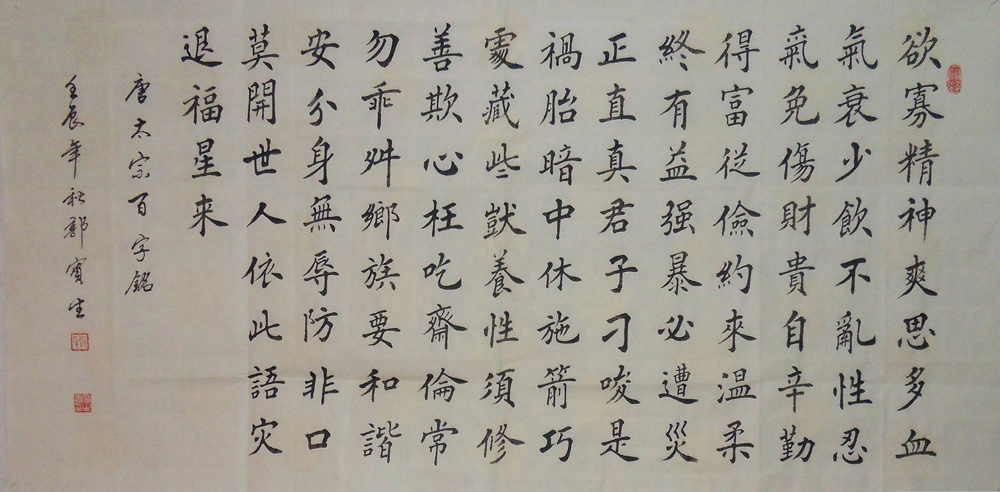 欲寡精神爽思多血
氣衰少飲不亂性忍
氣免傷財貴自辛勤
得富從儉約來温柔
終有益强暴必遭災
正直真君子刁唆是
禍胎暗中休施箭巧
處藏些獃養性須修
善欺心枉吃齋倫常
勿乖舛鄉族要和諧
安分身無辱防非口
莫開世人依此語灾
退福星来
唐太宗百字銘
壬辰年秋